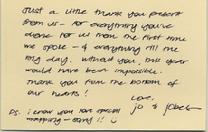 Just a little thank you present
from us - for everything you've
done for us from the first time
we spoke - & everything till the
big day. without you, this year
would have been impossible.
Thank you from the bottom of
our hearts!
Love,
Jo &
Ps. i know you love special
wrapping - sorry!! :)